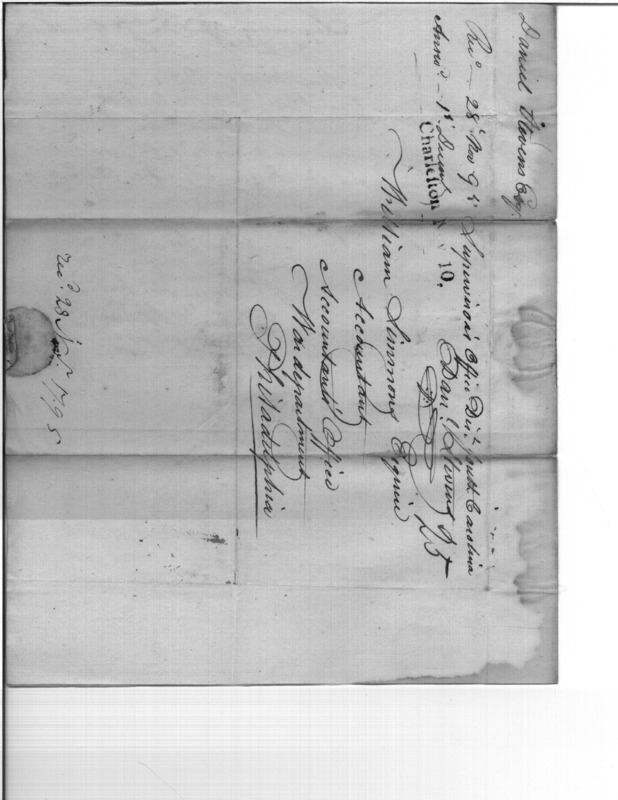 Daniel Stevens Esq.
Rec.d 28 Nov 95
Answd. 1st Decem.
Charleston 10.
Supervisors Office Dist. South Carolina
Dan.l Stevens
25
William Simmons Esquire
Accountant
Accountants Office
War department
Philadelphia
Rec.d 28 Nov.r 1795